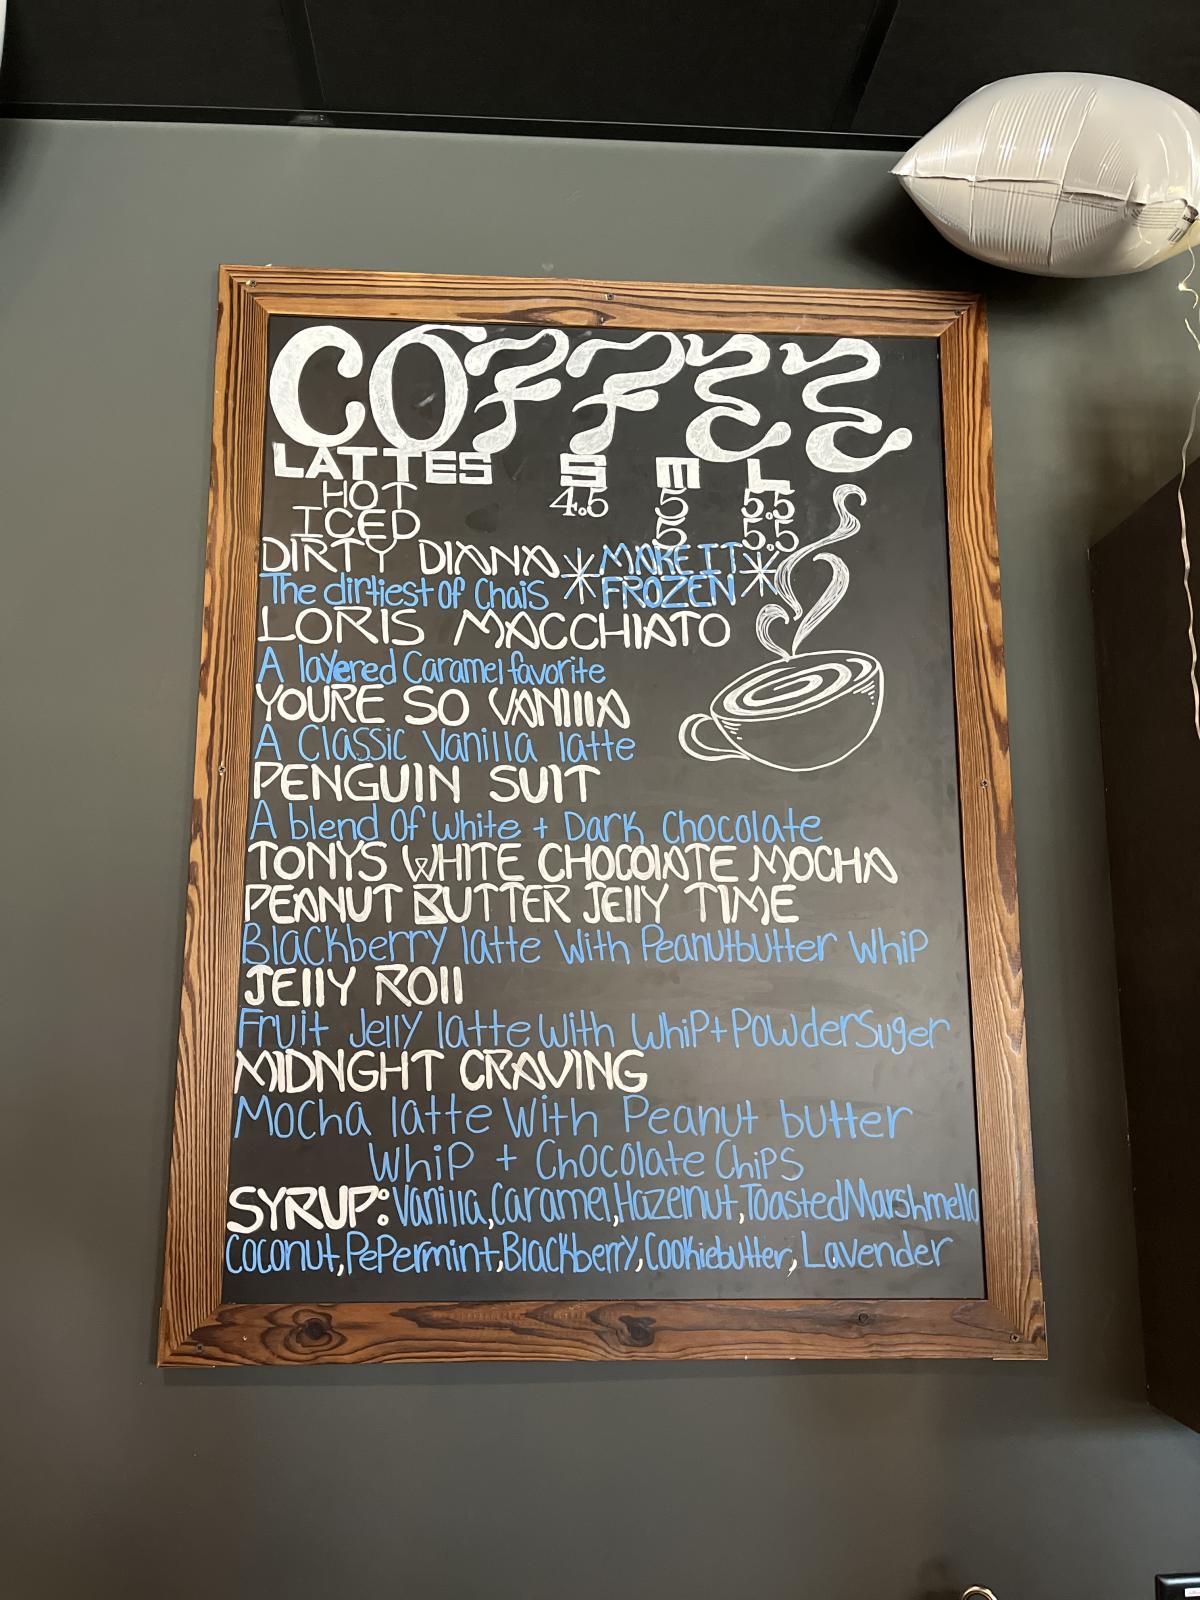 COFFEE
LATTES S M L
HOT 4.5 5 5.5
ICED 5 5.5
DIRTY DIANA *MAKE IT
The dirtiest of Chais FROZEN*
LORIS MACCHIATO
A layered Caramel favorite
YOURE SO VANIllA
A Classic Vanilla latte
PENGUIN SUIT
A blend Of White + Dark Chocolate
TONYS WHITE CHOCOlATE MOCHA
PEANUT BUTTER JEllY TIME
Blackberry latte With Peanutbutter Whip
JEllY ROll
Fruit Jelly latte With Whip+PowderSuger
MIDNGHT CRAVING
Mocha latte With Peanut butter
Whip + Chocolate Chips
SYRUP: Vanilla, Caramel, Hazelnut, Toasted Marshmello
Coconut, PePermint, Blackberry, Cookiebutter, Lavender